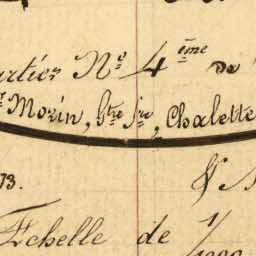 rtier No 4ème de
r Morin, Gtre Jre, Chalette
73.
Echelle de 1/